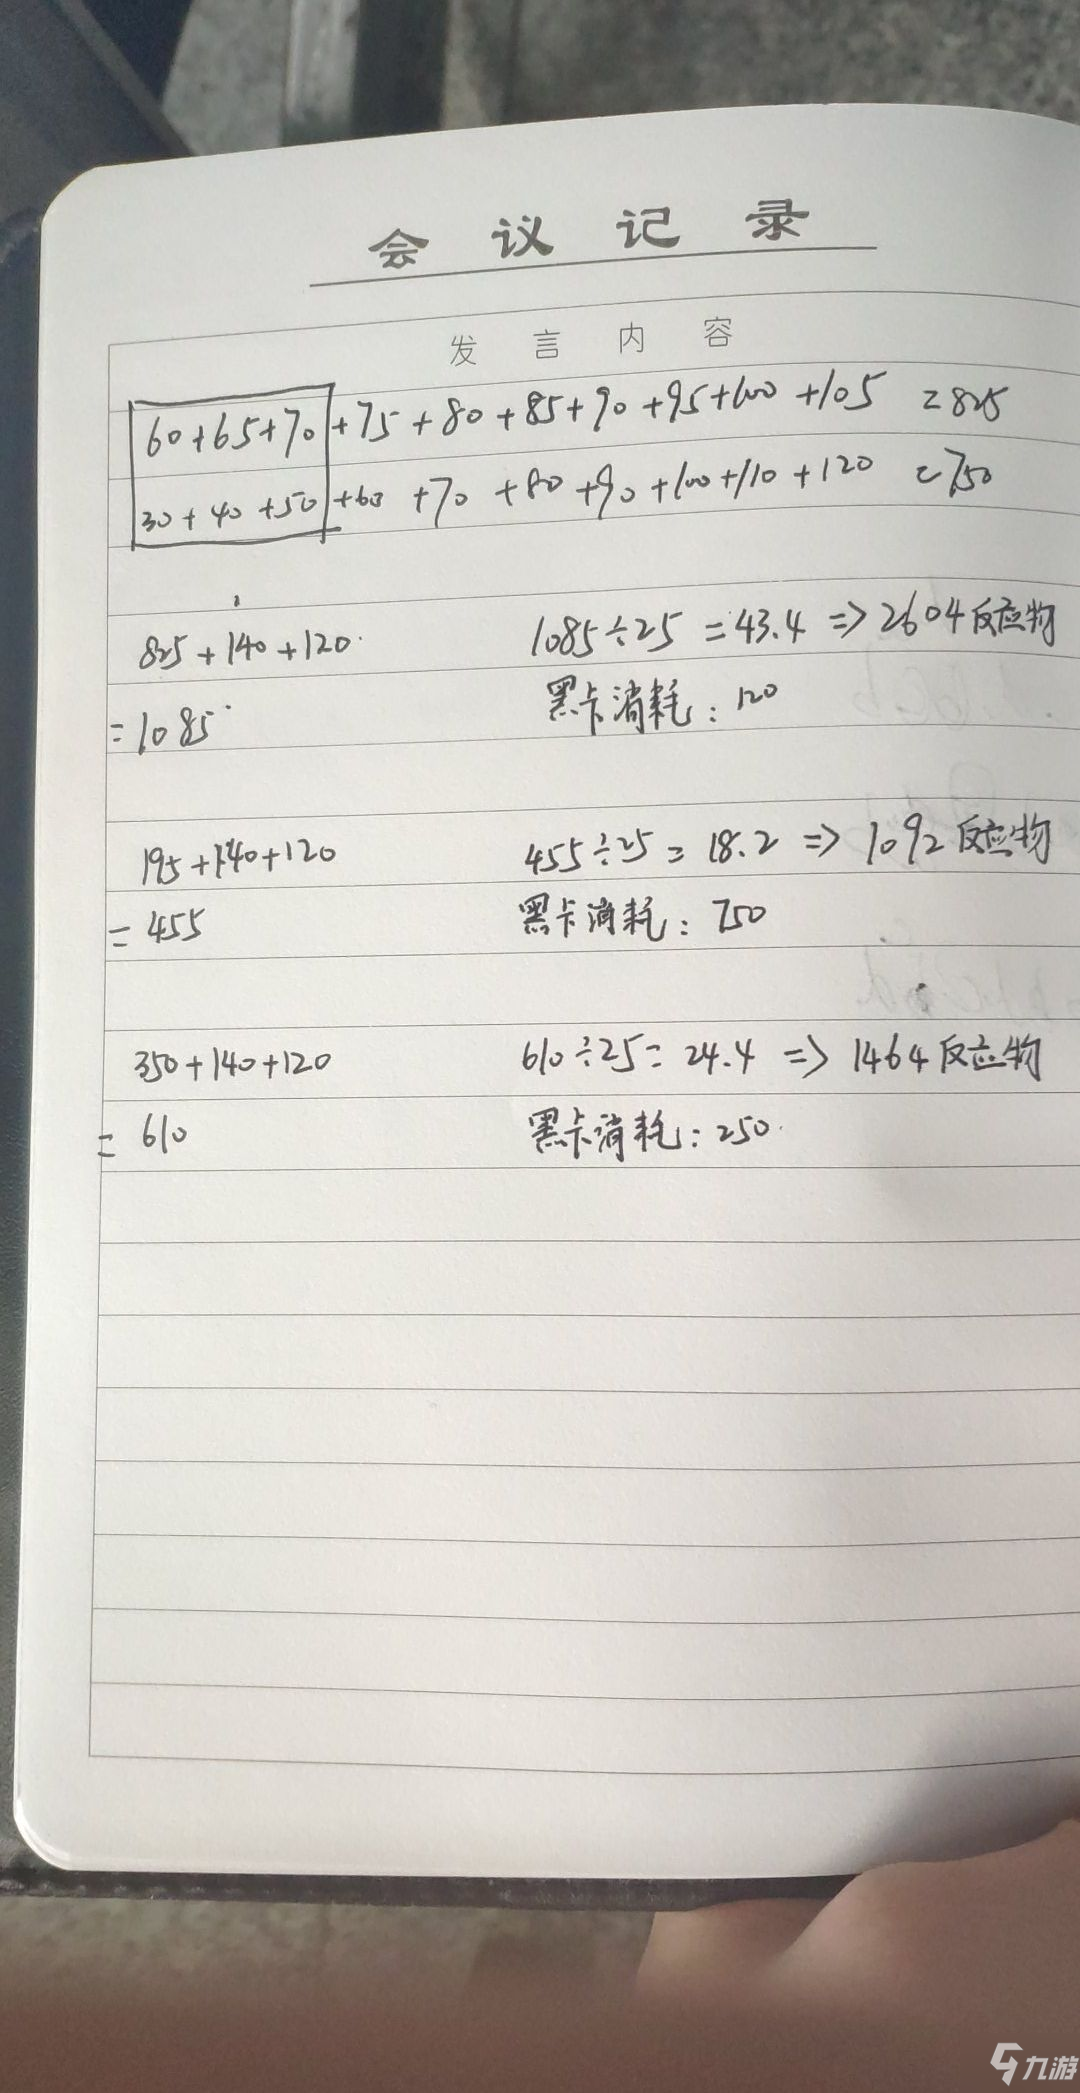 会议记录
发言内容
60+65+70+75+80+85+90+95+100+105=825
30+40+50+60+70+80+90+100+110+120=750
825+140+120 1085÷25=43.4=>2604反应物
=1085 黑卡消耗:120
195+140+120 455÷25=18.2=>1092反应物
=455 黑卡消耗:750
350+140+120 610÷25=24.4=>1464反应物
=610 黑卡消耗:250
九游